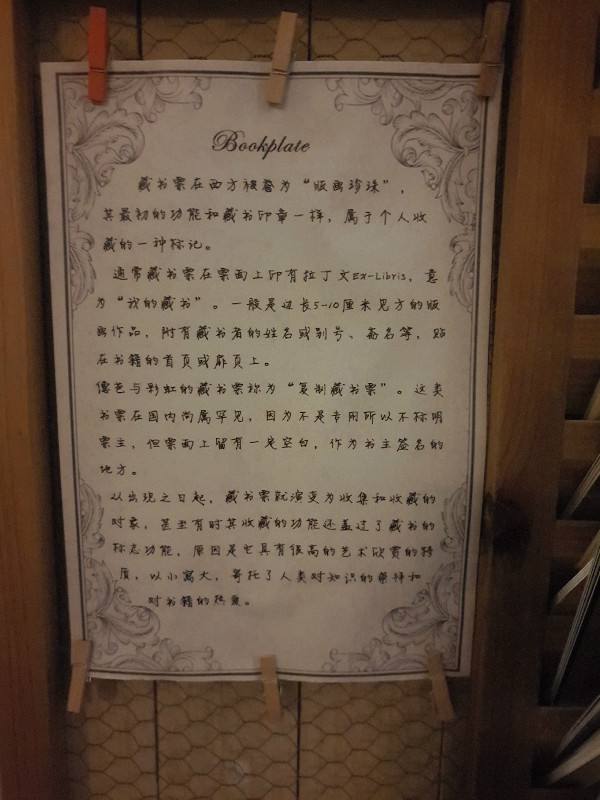 Bookplate
藏书票在西方被誉为“版画珍珠”，
其最初的功能和藏书印章一样，属于个人收
藏的一种标记。
通常藏书票在票面上印有拉丁文Ex-Libris，意
为“我的藏书”。一般是边长5-10厘米见方的版
画作品，附有藏书者的姓名或别号、斋名等，贴
在书籍的首页或扉页上。
儒艺与彩虹的藏书票称为“复制藏书票”。这类
书票在国内尚属罕见，因为不是专用所以不标明
票主，但票面上留有一定空白，作为书主签名的
地方。
从出现之日起，藏书票就演变为收集和收藏的
对象，甚至有时其收藏的功能还盖过了藏书的
标志功能，原因是它具有很高的艺术欣赏的特
质，以小寓大，寄托了人类对知识的崇拜和
对书籍的热爱。